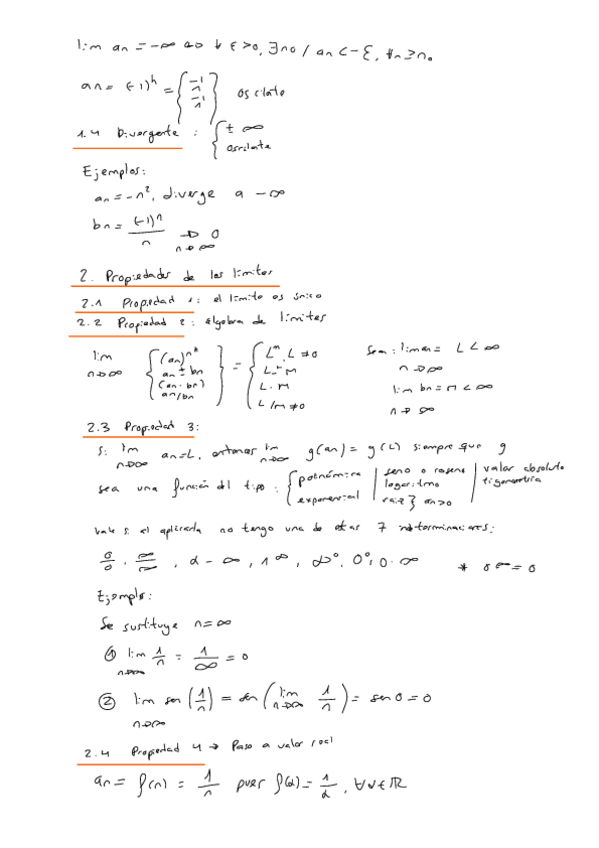 lim an = -∞ ⇔ ∀ ε > 0, ∃ n0 / an < -ε, ∀n ≥ n0
an = (-1)^n = { -1 1 -1 1 } oscilato
1.4 Divergente : { ± ∞ oscilato
Ejemplos:
an = -n², diverge a -∞
bn = (-1)^n / n → 0 n→∞
2. Propiedades de los límites
2.1 Propiedad 1: el límite es único
2.2 Propiedad 2: álgebra de límites
lim n→∞ { (an)^k, an ± bn, (an · bn), an/bn } = { L^k, L ≠ 0, L ± M, L · M, L/M ≠ 0
Sea: lim an = L < ∞ n→∞
lim bn = M < ∞ n→∞
2.3 Propiedad 3:
Si lim n→∞ an = L, entonces lim n→∞ g(an) = g(L) siempre que g
sea una función del tipo: { polinómica exponencial | seno o coseno logaritmo raíz } an>0 | valor absoluto trigonométrica
Vale si al aplicarla no tengo una de estas 7 indeterminaciones:
0/0, ∞/∞, ∞ - ∞, 1^∞, ∞^0, 0^0, 0 · ∞ * 0^∞ = 0
Ejemplo:
Se sustituye n = ∞
① lim n→∞ 1/n = 1/∞ = 0
② lim n→∞ sen (1/n) = sen (lim n→∞ 1/n) = sen 0 = 0
2.4 Propiedad 4 → Paso a valor real
an = f(n) = 1/n